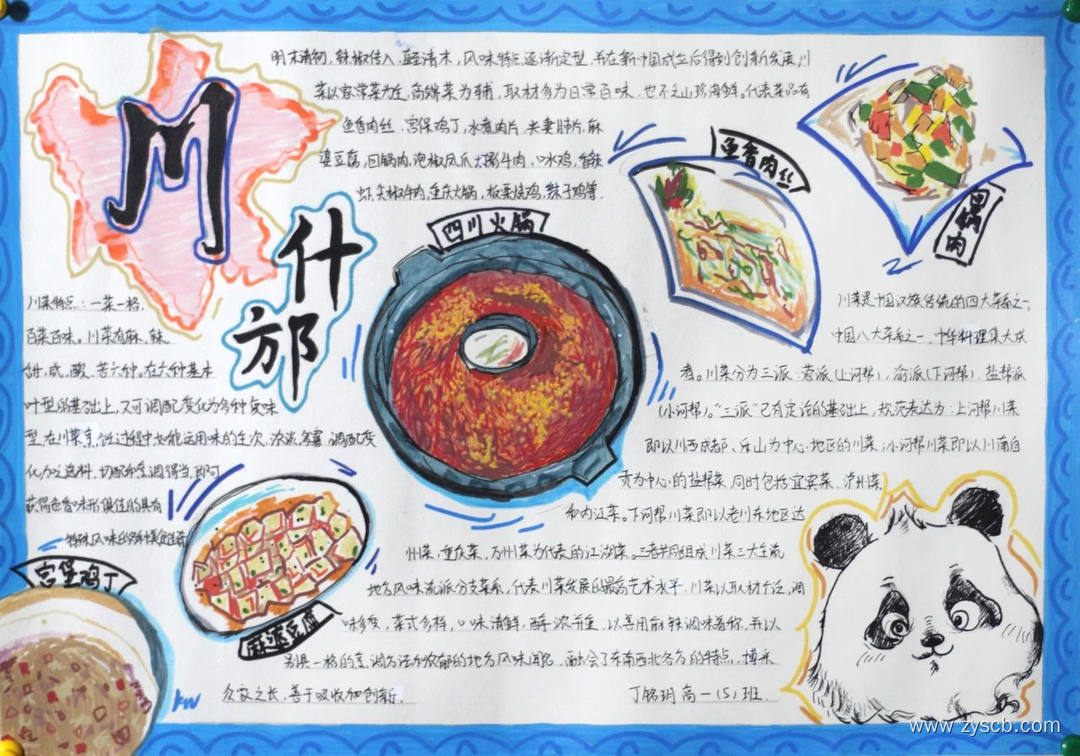 川
什
邡
明末清初,辣椒传入,至清末,风味特点逐渐定型,并在新中国成立后得到创新发展,川
菜以家常菜为主,高端菜为辅,取材多为日常百味,也不乏山珍海鲜。代表菜品有
鱼香肉丝、宫保鸡丁,水煮肉片,夫妻肺片,麻
婆豆腐,回锅肉,泡椒凤爪,火爆牛肉,口水鸡,香辣
虾,尖椒牛肉,重庆火锅,板栗烧鸡,辣子鸡等.
鱼香肉丝
回锅肉
四川火锅
川菜特点:一菜一格,
百菜百味。川菜有麻、辣
甜,咸,酸、苦六种。在六种基本
叶型的基础上,又可调配变化为多种复味
型,在川菜烹饪过程中如能运用味的主次、浓淡、多寡,调配变
化加之选料、切配和烹调得当,即可
获得色香味形俱佳的具有
特殊风味的各种美味佳肴
川菜是中国汉族传统的四大菜系之一,
中国八大菜系之一、中华料理集大成
者。川菜分为三派:蓉派(上河帮),渝派(下河帮),盐帮派
(小河帮)。"三派"已有定论的基础上,规范表达为:上河帮川菜
即以川西成都、乐山为中心地区的川菜;小河帮川菜即以川南自
贡为中心的盐帮菜,同时包括宜宾菜、泸州菜
和内江菜。下河帮川菜即以老川东地区达
州菜,重庆菜,万州菜为代表的江湖菜。三者共同组成川菜三大主流
地方风味流派分支菜系,代表川菜发展的最高艺术水平.川菜以取材广泛,调
味多变,菜式多样,口味清鲜,醇浓并重,以善用麻辣调味著称,并以
别具一格的烹调方法和浓郁的地方风味闻名,融会了东南西北各方的特点,博采
众家之长,善于吸收和创新.
宫堡鸡丁
麻婆豆腐
kw
丁铭玥 高一(5)班
www.zyscb.com